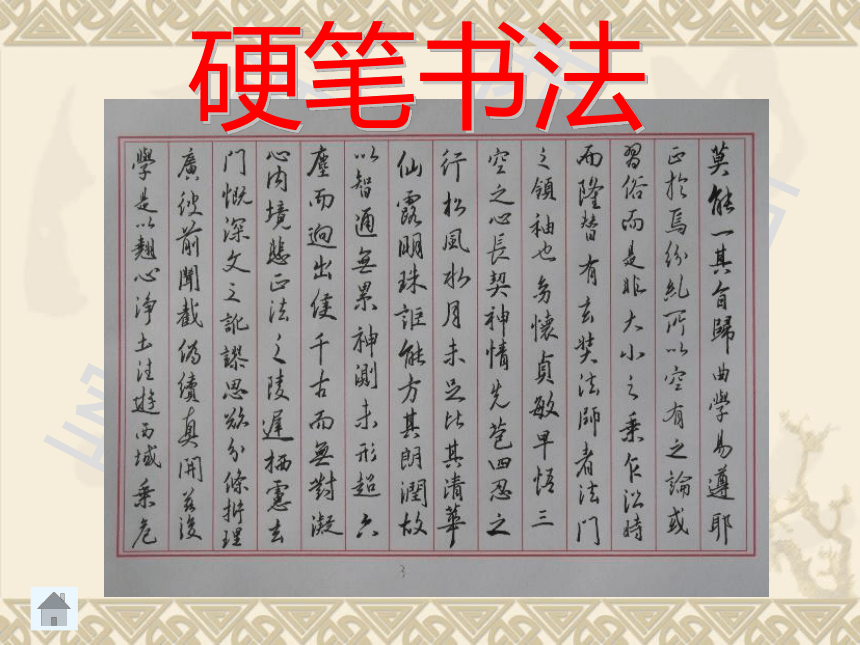 硬笔书法
莫能一其旨歸曲學易遵耶
正於焉紛糺所以空有之論或
習俗而是非大小之乘乍沿時
而隆替有玄奘法師者法門
之領袖也幼懷貞敏早悟三
空之心長契神情先苞四忍之
行松風水月未足比其清華
仙露明珠詎能方其朗潤故
以智通無累神測未形超六
塵而迥出隻千古而無對凝
心内境悲正法之陵遲栖慮玄
門慨深文之訛謬思欲分條析理
廣彼前聞截偽續真開茲後
學是以翹心淨土法遊西域乘危
3